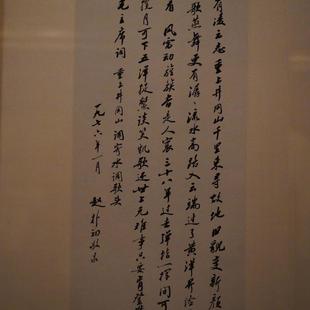 有凌云志 重上井冈山 千里来寻故地 旧貌变新颜
歌燕舞 更有潺潺流水 高路入云端 过了黄洋界 险
看 风雷动 旌旗奋 是人寰 三十八年过去 弹指一挥间 可
揽月 可下五洋捉鳖 谈笑凯歌还 世上无难事 只要肯登
毛主席词 重上井冈山 调寄水调歌头
一九七六年一月 赵朴初敬录